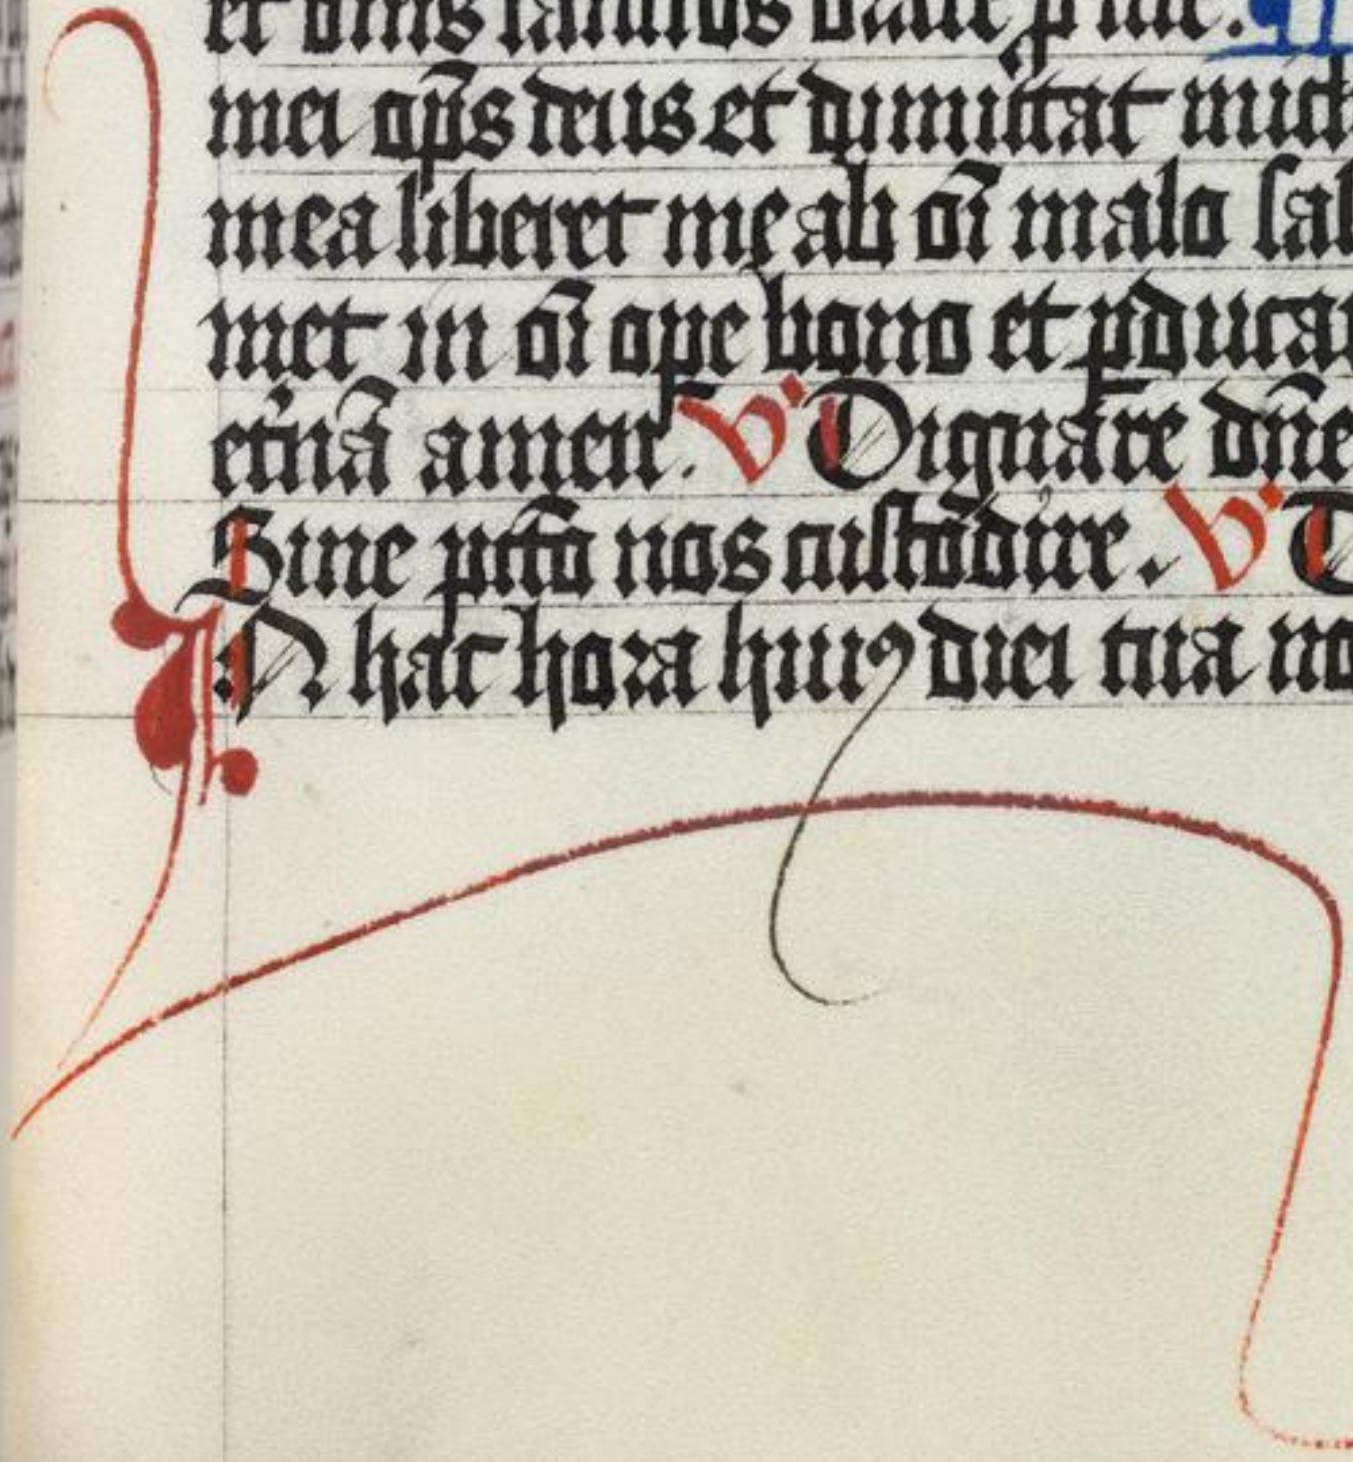 et om̄s sanctos orate p me. M
mei op̄s deus et dimittat mich
mea liberet me ab oī malo sal
met in oī ope bono et ꝑducat
et̾nā amen. V Dignare dn̄e
Sine pcc̄o nos custodire. V
In hac hora huiꝰ diei tua no